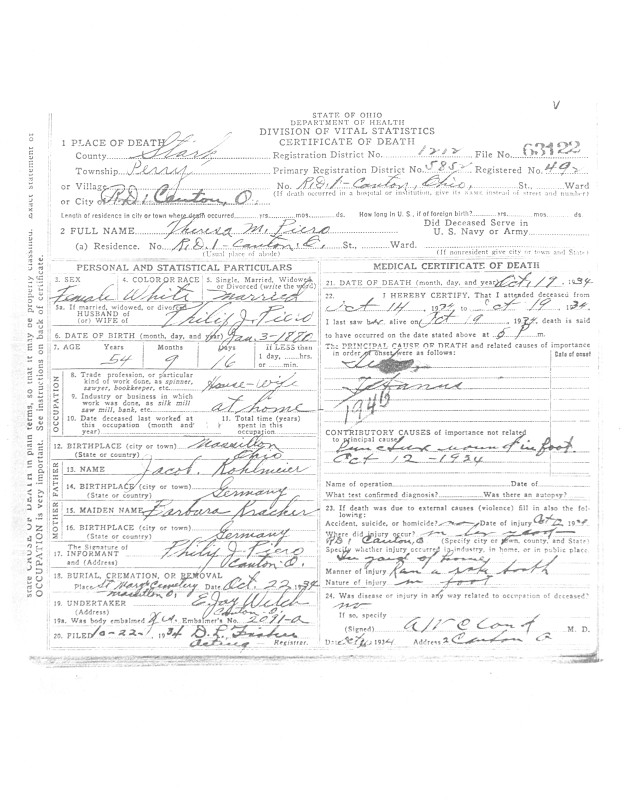 V
STATE OF OHIO
DEPARTMENT OF HEALTH
DIVISION OF VITAL STATISTICS
CERTIFICATE OF DEATH
1 PLACE OF DEATH
County Stark Registration District No. 1212 File No. 63122
Township Perry Primary Registration District No. 5852 Registered No. 492
or Village No. R.D. 1-Canton, Ohio, St., Ward
(If death occurred in a hospital or institution, give its name instead of street and number)
or City of R.D. 1 Canton, O.
Length of residence in city or town where death occurred yrs. mos. ds. How long in U. S., if of foreign birth? yrs. mos. ds.
2 FULL NAME Theresa M. Piero Did Deceased Serve in U. S. Navy or Army
(a) Residence. No. R.D. 1-Canton, O. St., Ward.
(Usual place of abode) (If nonresident give city or town and State)
PERSONAL AND STATISTICAL PARTICULARS
3. SEX Female
4. COLOR OR RACE White
5. Single, Married, Widowed or Divorced (write the word) Married
5a. If married, widowed, or divorced
HUSBAND of
(or) WIFE of Philip J. Piero
6. DATE OF BIRTH (month, day, and year) Jan. 3-1880
7. AGE Years Months Days If LESS than
54 9 16 1 day, hrs.
or min.
OCCUPATION
8. Trade, profession, or particular
kind of work done, as spinner,
sawyer, bookkeeper, etc. House-wife
9. Industry or business in which
work was done, as silk mill
saw mill, bank, etc. at home
10. Date deceased last worked at
this occupation (month and
year)
11. Total time (years)
spent in this
occupation
12. BIRTHPLACE (city or town) Massillon
(State or country) Ohio
FATHER
13. NAME Jacob Kohlmeier
14. BIRTHPLACE (city or town)
(State or country) Germany
MOTHER
15. MAIDEN NAME Barbara Kracker
16. BIRTHPLACE (city or town)
(State or country) Germany
17. The Signature of
INFORMANT Philip J. Piero
and (Address) Canton O.
18. BURIAL, CREMATION, OR REMOVAL
Place St Marys Cemetery Date Oct. 22, 1934
Massillon O.
19. UNDERTAKER E. Jay Welch
(Address) Canton O.
19a. Was body embalmed Embalmer's No. 2091-a
20. FILED 10-22-, 1934 D. L.
Acting Registrar.
MEDICAL CERTIFICATE OF DEATH
21. DATE OF DEATH (month, day, and year) Oct, 19 1934
22. I HEREBY CERTIFY, That I attended deceased from
Oct 14, 1934 to Oct 19, 1934
I last saw her alive on Oct 19, 1934, death is said
to have occurred on the date stated above at
The PRINCIPAL CAUSE OF DEATH and related causes of importance
in order of onset were as follows: Date of onset
Tetanus
1946
CONTRIBUTORY CAUSES of importance not related
to principal cause:
Puncture wound in foot
Oct-12-1934
Name of operation Date of
What test confirmed diagnosis? Was there an autopsy?
23. If death was due to external causes (violence) fill in also the following:
Accident, suicide, or homicide? Date of injury Oct 1934
Where did injury occur?
Canton, O (Specify city or town, county, and State)
Specify whether injury occurred in industry, in home, or in public place.
In yard of home
Manner of injury Ran a rake tooth
Nature of injury in foot
24. Was disease or injury in any way related to occupation of deceased?
no
If so, specify
(Signed) M. D.
Date 1934 Address Canton O
state CAUSE OF DEATH in plain terms, so that it may be properly classified. Exact statement of
OCCUPATION is very important. See instructions on back of certificate.